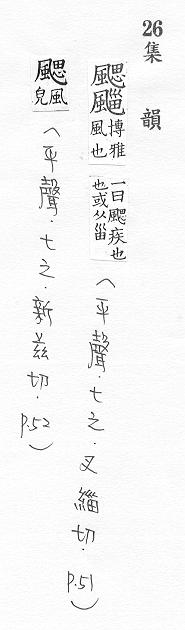 26 集 韻
颸 博雅風也 一曰颸疾也也或从甾 (平聲.七之.叉緇切. P.51)
颸 風皃 (平聲.七之.新茲切. P.52)